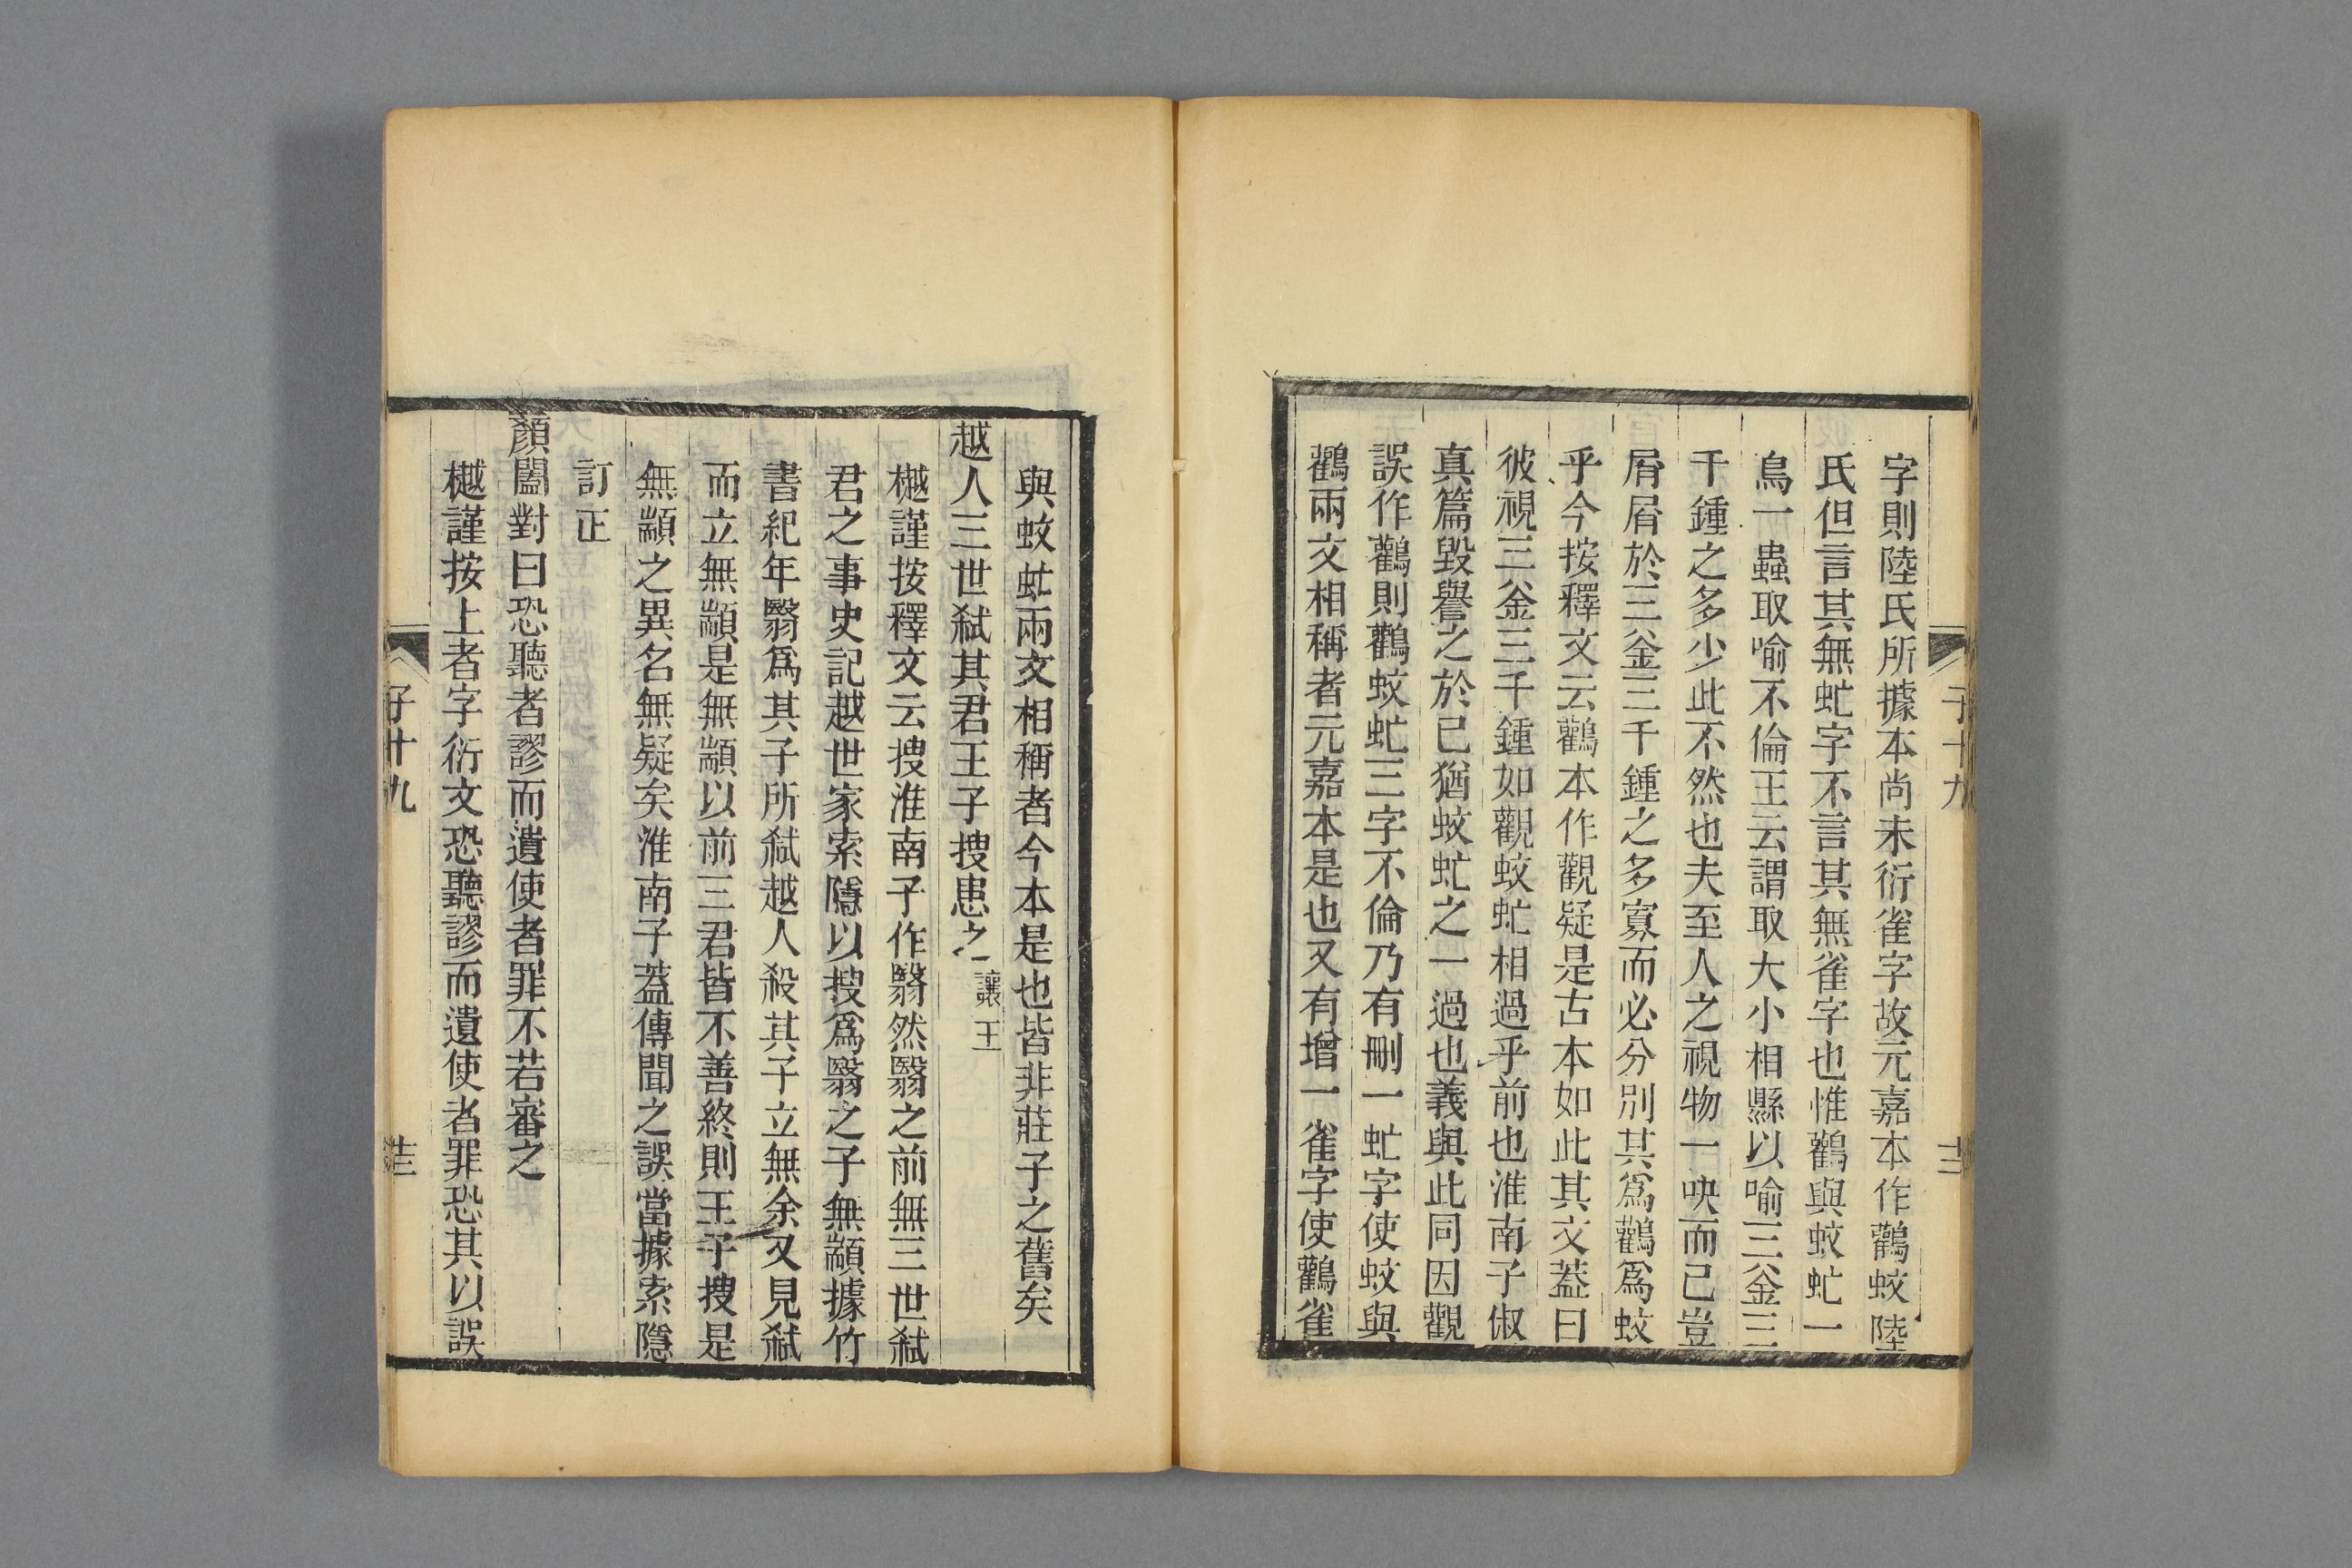 字則陸氏所據本尚未衍雀字故元嘉本作鸛蚊陸
氏但言其無虻字不言其無雀字也惟鸛與蚊虻一
鳥一蟲取喻不倫王云謂取大小相縣以喻三釜三
千鍾之多少此不然也夫至人之視物一吷而已豈
屑屑於三釜三千鍾之多寡而必分別其爲鸛爲蚊
乎今按釋文云鸛本作觀疑是古本如此其文蓋曰
彼視三釜三千鍾如觀蚊虻相過乎前也淮南子俶
真篇毀譽之於已猶蚊虻之一過也義與此同因觀
誤作鸛則鸛蚊虻三字不倫乃有刪一虻字使蚊與
鸛兩文相稱者元嘉本是也又有增一雀字使鸛雀
子十九
與蚊虻兩文相稱者今本是也皆非莊子之舊矣
越人三世弑其君王子搜患之 讓王
樾謹按釋文云搜淮南子作翳然翳之前無三世弑
君之事史記越世家索隱以搜爲翳之子無顓據竹
書紀年翳爲其子所弑越人殺其子立無余又見弑
而立無顓是無顓以前三君皆不善終則王子搜是
無顓之異名無疑矣淮南子蓋傳聞之誤當據索隱
訂正
顏闔對曰恐聽者謬而遺使者罪不若審之
樾謹按上者字衍文恐聽謬而遺使者罪恐其以誤
子十九